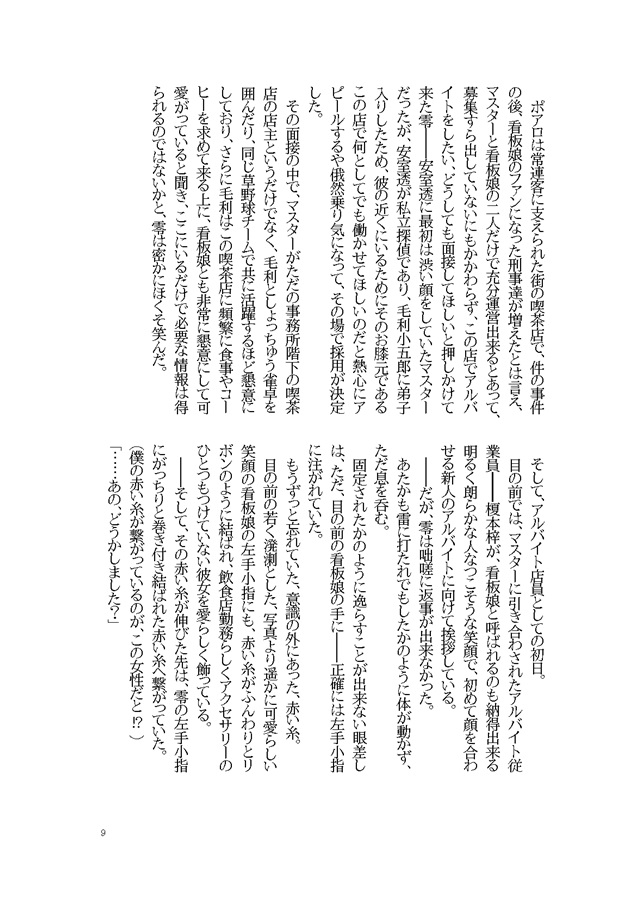 ポアロは常連客に支えられた街の喫茶店で、件の事件
の後、看板娘のファンになった刑事達が増えたとは言え、
マスターと看板娘の二人だけで充分運営出来るとあって、
募集すら出していないにもかかわらず、この店でアルバ
イトをしたい、どうしても面接してほしいと押しかけて
来た零――安室透に最初は渋い顔をしていたマスター
だったが、安室透が私立探偵であり、毛利小五郎に弟子
入りしたため、彼の近くにいるためにそのお膝元である
この店で何としてでも働かせてほしいのだと熱心にア
ピールするや俄然乗り気になって、その場で採用が決定
した。
その面接の中で、マスターがただの事務所階下の喫茶
店の店主というだけでなく、毛利としょっちゅう雀卓を
囲んだり、同じ草野球チームで共に活躍するほど懇意に
しており、さらに毛利はこの喫茶店に頻繁に食事やコー
ヒーを求めて来る上に、看板娘とも非常に懇意にして可
愛がっていると聞き、ここにいるだけで必要な情報は得
られるのではないかと、零は密かにほくそ笑んだ。
そして、アルバイト店員としての初日。
目の前では、マスターに引き合わされたアルバイト従
業員――榎本梓が、看板娘と呼ばれるのも納得出来る
明るく朗らかな人なつこそうな笑顔で、初めて顔を合わ
せる新人のアルバイトに向けて挨拶している。
――だが、零は咄嗟に返事が出来なかった。
あたかも雷に打たれでもしたかのように体が動かず、
ただ息を呑む。
固定されたかのように逸らすことが出来ない眼差し
は、ただ、目の前の看板娘の手に――正確には左手小指
に注がれていた。
もうずっと忘れていた、意識の外にあった、赤い糸。
目の前の若く溌溂とした、写真より遥かに可愛らしい
笑顔の看板娘の左手小指にも、赤い糸がふんわりとリ
ボンのように結ばれ、飲食店勤務らしくアクセサリーの
ひとつもつけていない彼女を愛らしく飾っている。
――そして、その赤い糸が伸びた先は、零の左手小指
にがっちりと巻き付き結ばれた赤い糸へ繋がっていた。
（僕の赤い糸が繋がっているのが、この女性だと!?）
「……あの、どうかしました？」
9